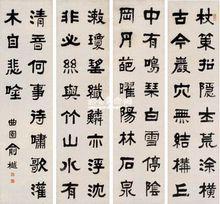 杖策招隱士荒塗橫
古今巖穴無結構丘
中有鳴琴白雪停陰
岡丹葩曜陽林石泉
漱瓊瑤纖鱗亦浮沈
非必絲與竹山水有
清音何事待嘯歌灌
木自悲唫
曲園俞樾